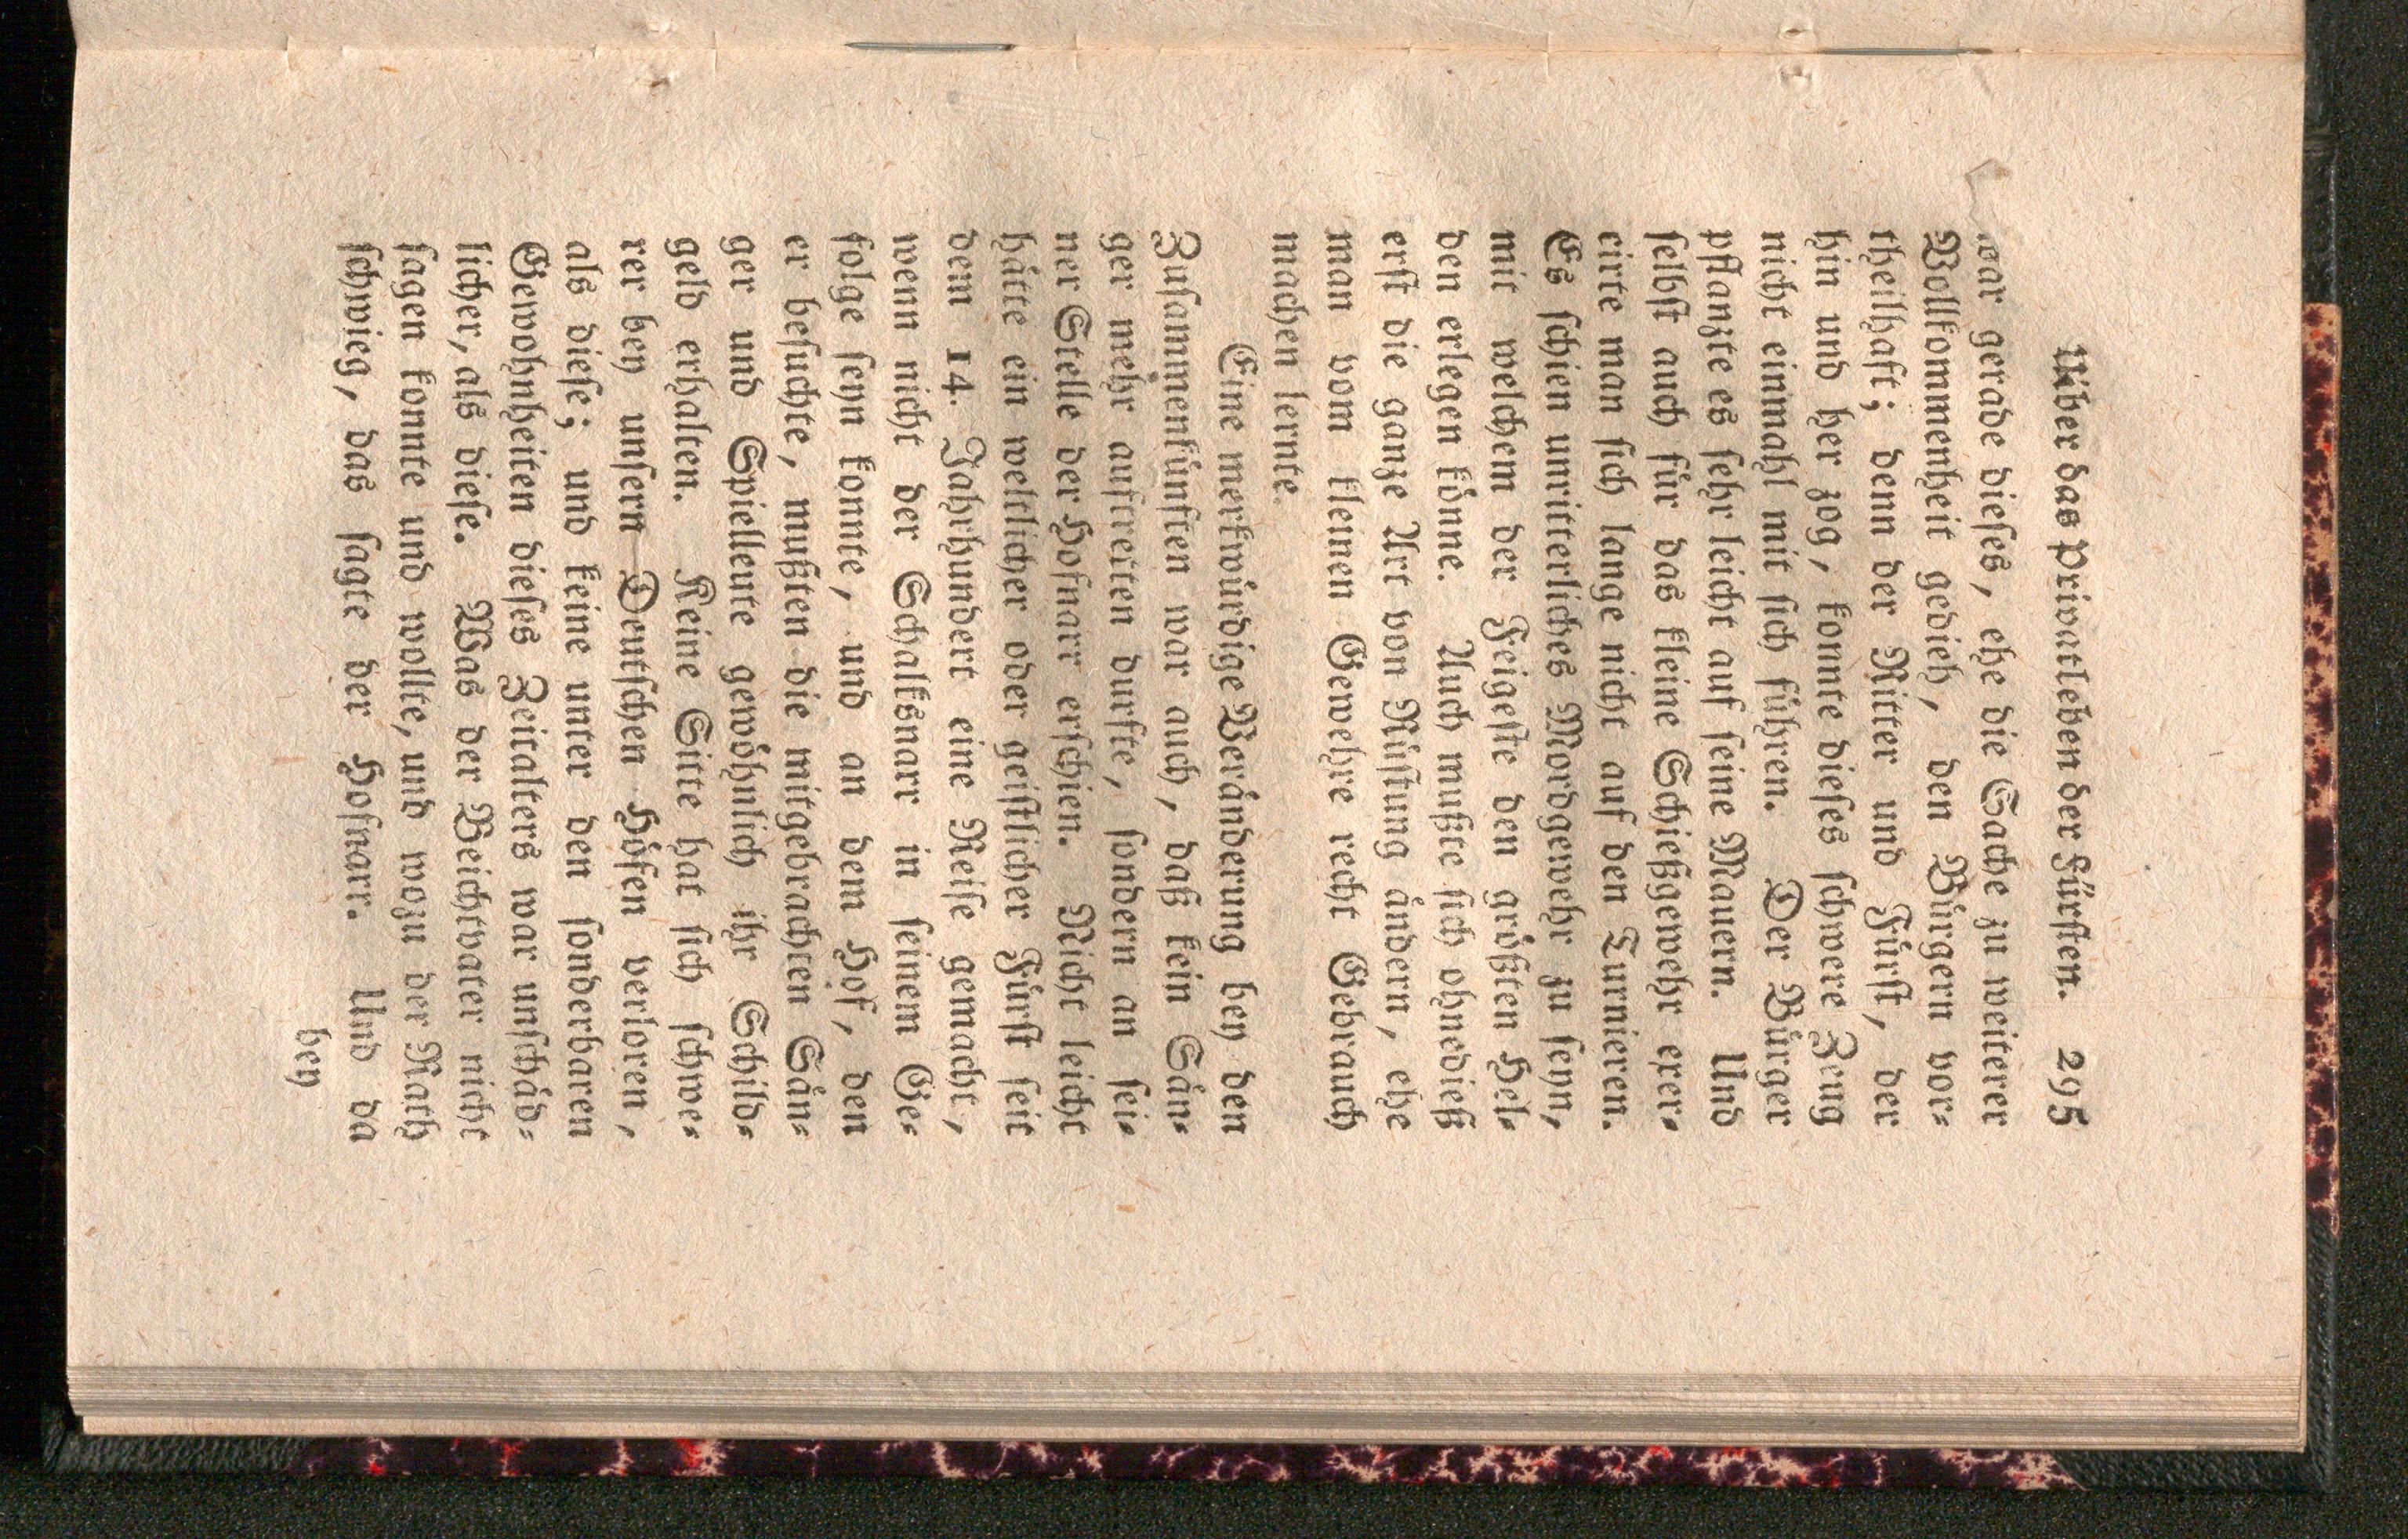 Uiber das Privatleben der Fürsten. 295
war gerade dieses, ehe die Sache zu weiterer
Vollkommenheit gedieh, den Bürgern vor-
theilhaft; denn der Ritter und Fürst, der
hin und her zog, konnte dieses schwere Zeug
nicht einmahl mit sich führen. Der Bürger
pflanzte es sehr leicht auf seine Mauern. Und
selbst auch für das kleine Schießgewehr exer-
cirte man sich lange nicht auf den Turnieren.
Es schien unritterliches Mordgewehr zu seyn,
mit welchem der Feigeste den größten Hel-
den erlegen könne. Auch mußte sich ohnedieß
erst die ganze Art von Rüstung ändern, ehe
man vom kleinen Gewehre recht Gebrauch
machen lernte.
Eine merkwürdige Veränderung bey den
Zusammenkünften war auch, daß kein Sän-
ger mehr auftretten durfte, sondern an sei-
ner Stelle der Hofnarr erschien. Nicht leicht
hätte ein weltlicher oder geistlicher Fürst seit
dem 14. Jahrhundert eine Reise gemacht,
wenn nicht der Schalksnarr in seinem Ge-
folge seyn konnte, und an dem Hof, den
er besuchte, mußten die mitgebrachten Sän-
ger und Spielleute gewöhnlich ihr Schild-
geld erhalten. Keine Sitte hat sich schwe-
rer bey unsern Deutschen Höfen verloren,
als diese; und keine unter den sonderbaren
Gewohnheiten dieses Zeitalters war unschäd-
licher, als diese. Was der Beichtvater nicht
sagen konnte und wollte, und wozu der Rath
schwieg, das sagte der Hofnarr. Und da
bey